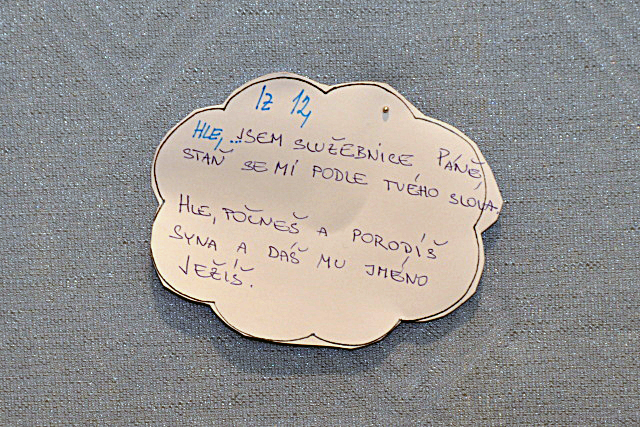 Iz 12,
HLE, ...JSEM SLUŽEBNICE PÁNĚ,
STAŇ SE MI PODLE TVÉHO SLOVA.
HLE, POČNEŠ A PORODÍŠ
SYNA A DÁŠ MU JMÉNO
JEŽÍŠ.